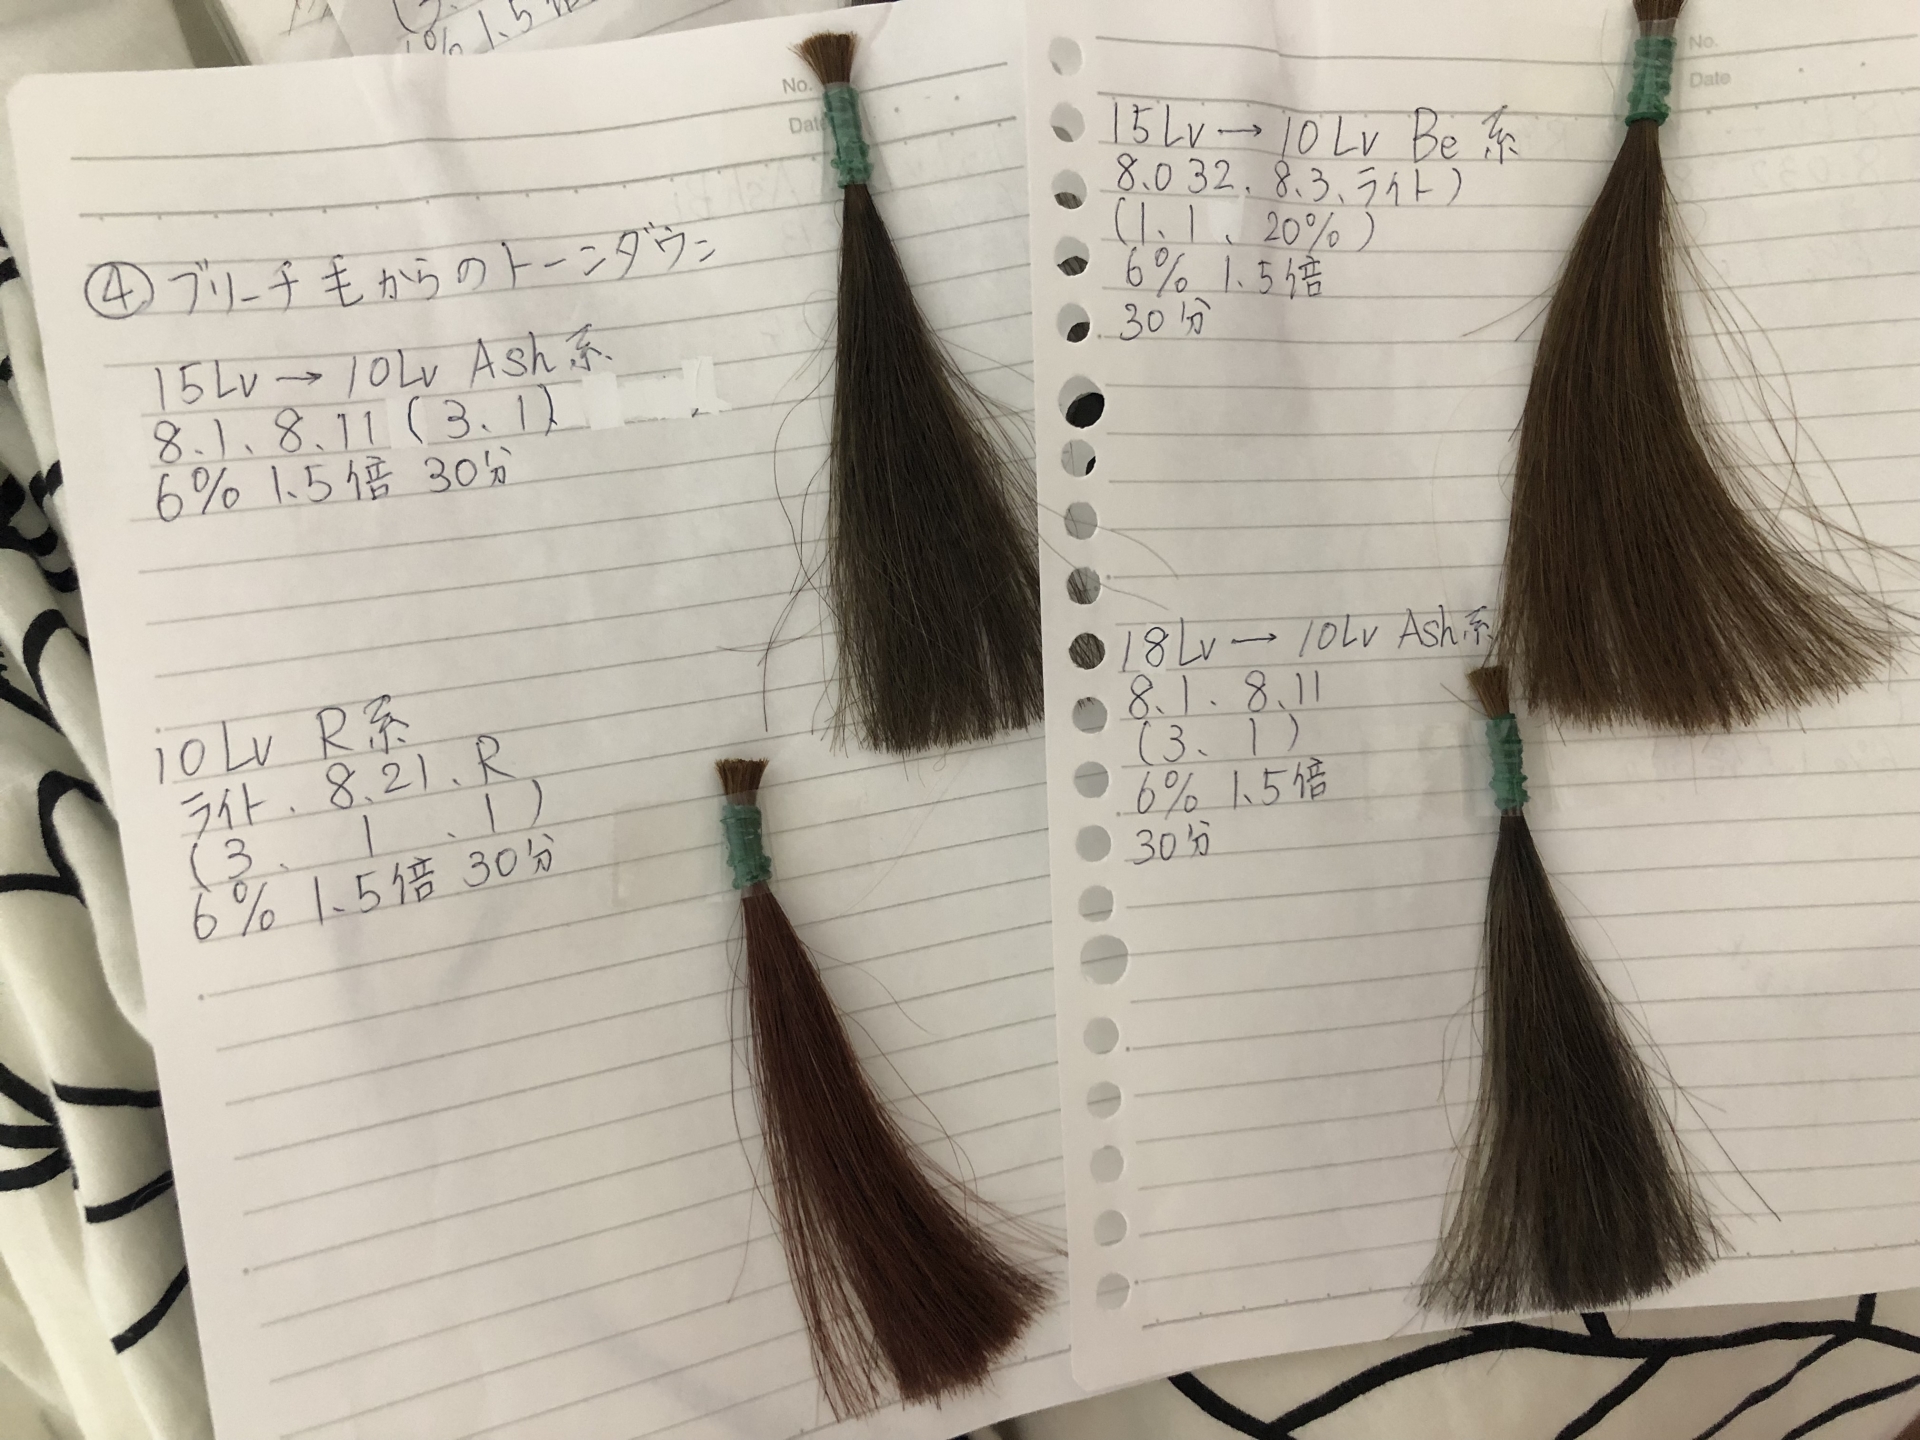 % 1.5
No.
Date
④ ブリーチ毛からのトーンダウン
15Lv → 10Lv Ash系
8.1、8.11 (3、1)
6% 1.5倍 30分
10Lv R系
ライト、8.21、R
(3、1、1)
6% 1.5倍 30分
No.
Date
15Lv → 10Lv Be系
8.032、8.3、ライト)
(1、1、20%)
6% 1.5倍
30分
18Lv → 10Lv Ash系
8.1、8.11
(3、1)
6% 1.5倍
30分